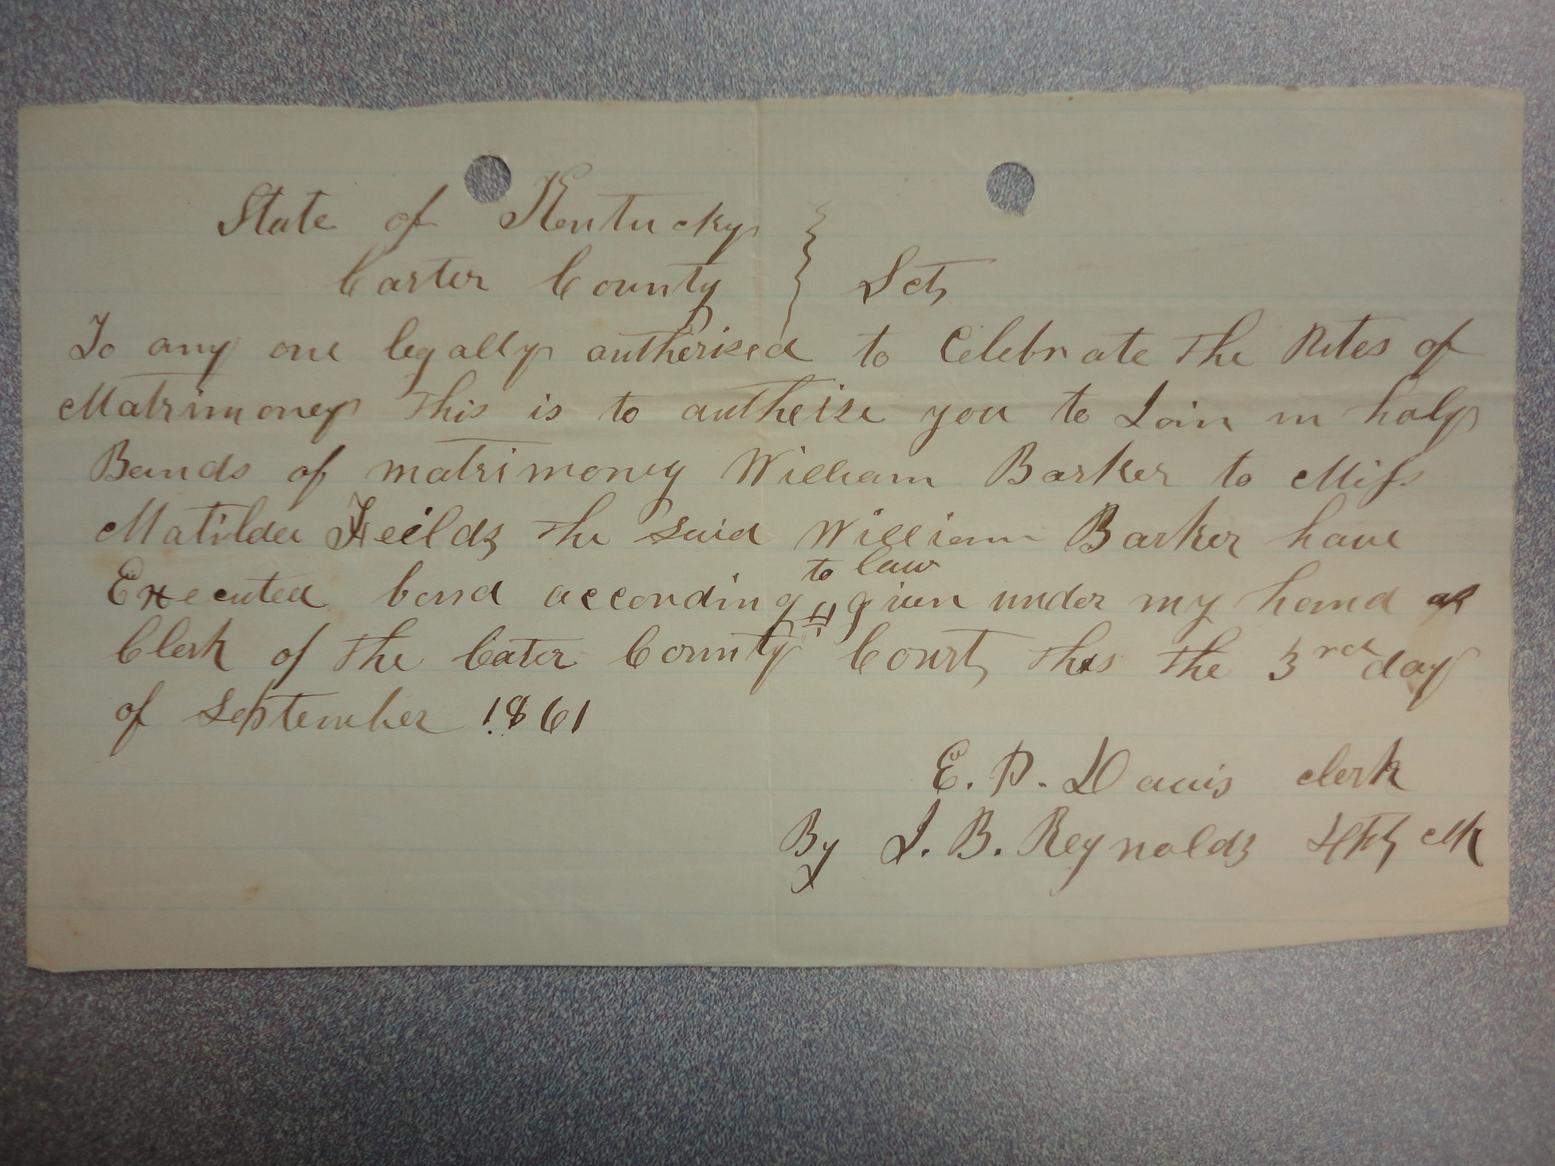 State of Kentucky
Carter County } Sct,
To any one legally autherised to Celebrate the Rites of
Matrimoney This is to autherise you to Join in holy
Bands of matrimoney William Barker to Miss
Matilda Feilds the said William Barker have
to law
Executed bond according given under my hand as
Clerk of the Cater County Court, this the 3rd day
of September 1861
E. D. Davis clerk
By J. B. Reynolds